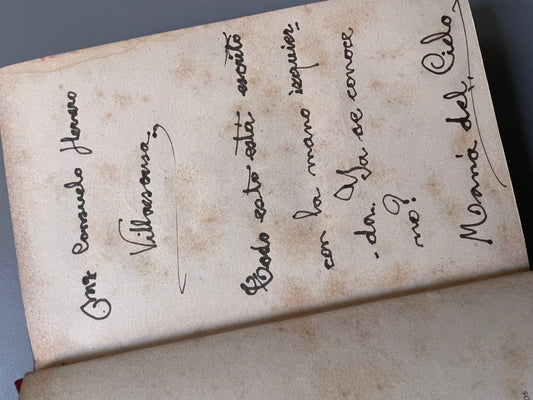 Consuelo Herrero
Villaescusa.
Todo esto está escrito
con la mano izquier-
-da. Ya se conoce
no?
María del Cielo